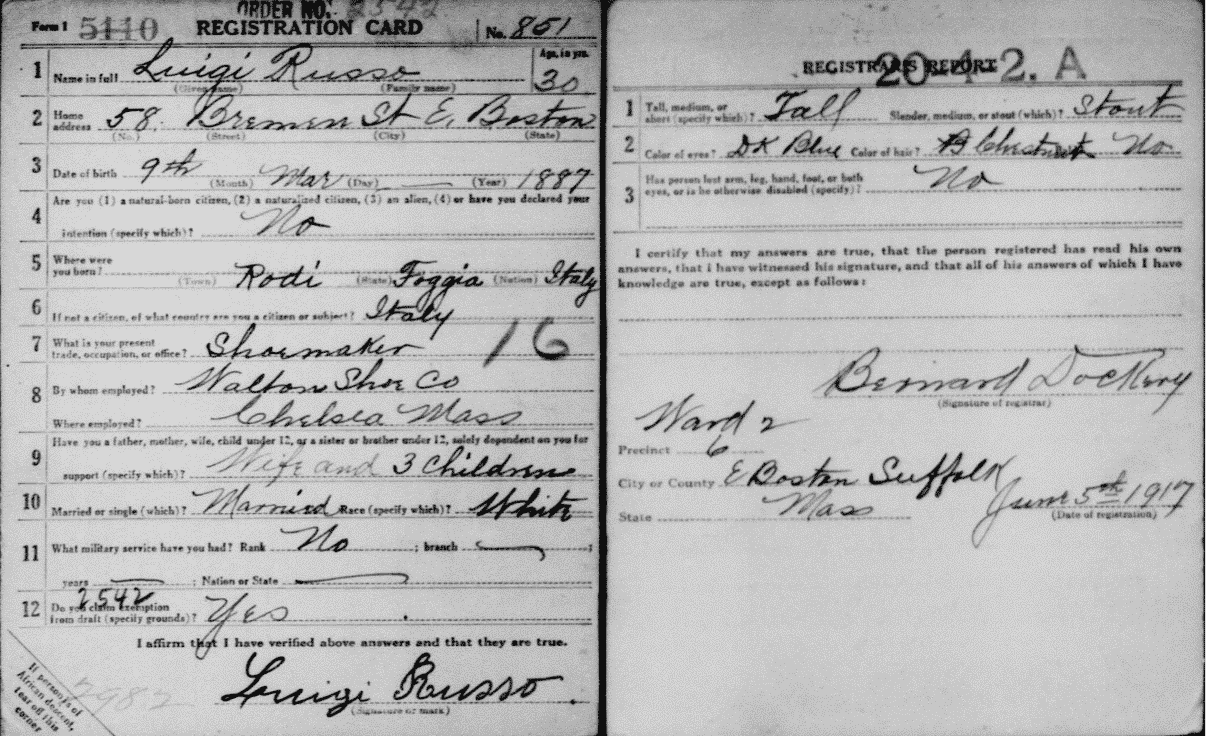 ORDER NO. 2542
Form 1 5110 REGISTRATION CARD No. 851
1 Name in full Luigi Russo Age, in yrs. 30
(Given name) (Family name)
2 Home address 58 Bremen St E. Boston
(No.) (Street) (City) (State)
3 Date of birth 9th (Month) Mar (Day) — (Year) 1887
4 Are you (1) a natural-born citizen, (2) a naturalized citizen, (3) an alien, (4) or have you declared your
intention (specify which)? No
5 Where were you born? (Town) Rodi (State) Foggia (Nation) Italy
6 If not a citizen, of what country are you a citizen or subject? Italy
7 What is your present trade, occupation, or office? Shoemaker 16
8 By whom employed? Walton Shoe Co
Where employed? Chelsea Mass
9 Have you a father, mother, wife, child under 12, or a sister or brother under 12, solely dependent on you for
support (specify which)? Wife and 3 children
10 Married or single (which)? Married Race (specify which)? White
11 What military service have you had? Rank No ; branch — ;
years — ; Nation or State —
2542
12 Do you claim exemption from draft (specify grounds)? Yes
I affirm that I have verified above answers and that they are true.
Luigi Russo.
(Signature or mark)
If person is of
African descent,
tear off this
corner
2982
20-4-2. A
REGISTRAR'S REPORT
1 Tall, medium, or short (specify which)? Tall Slender, medium, or stout (which)? Stout
2 Color of eyes? Dk Blue Color of hair? Chestnut No
3 Has person lost arm, leg, hand, foot, or both
eyes, or is he otherwise disabled (specify)? No
I certify that my answers are true, that the person registered has read his own
answers, that I have witnessed his signature, and that all of his answers of which I have
knowledge are true, except as follows:
Bernard Dockery
(Signature of registrar)
Ward 2
Precinct 6
City or County E Boston Suffolk
State Mass June 5th 1917
(Date of registration)